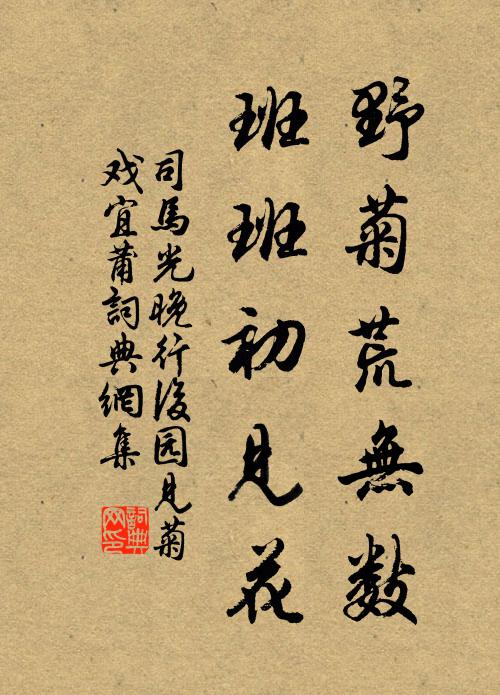 野菊荒無数
班班初見花
司馬光晚行後园見菊
戏宜莆詞典網集
詞典
网印